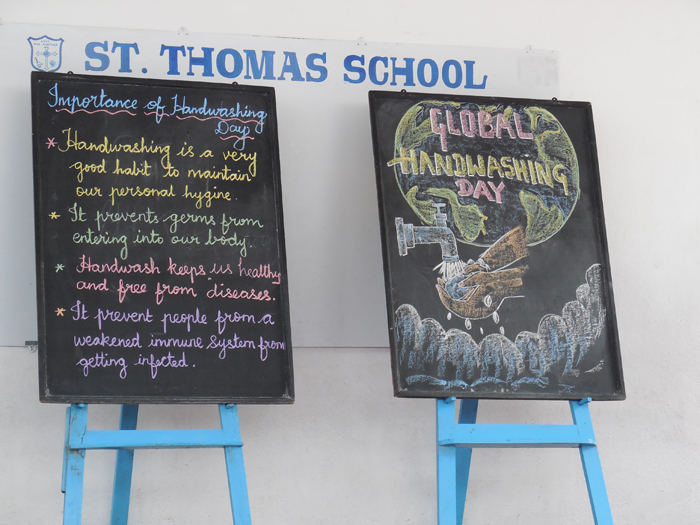 ST. THOMAS SCHOOL
Importance of Handwashing
Day
* Handwashing is a very
good habit to maintain
our personal hygine.
* It prevents germs from
entering into our body.
* Handwash keeps us healthy
and free from diseases.
* It prevent people from a
weakened immune system from
getting infected.
GLOBAL
HANDWASHING
DAY